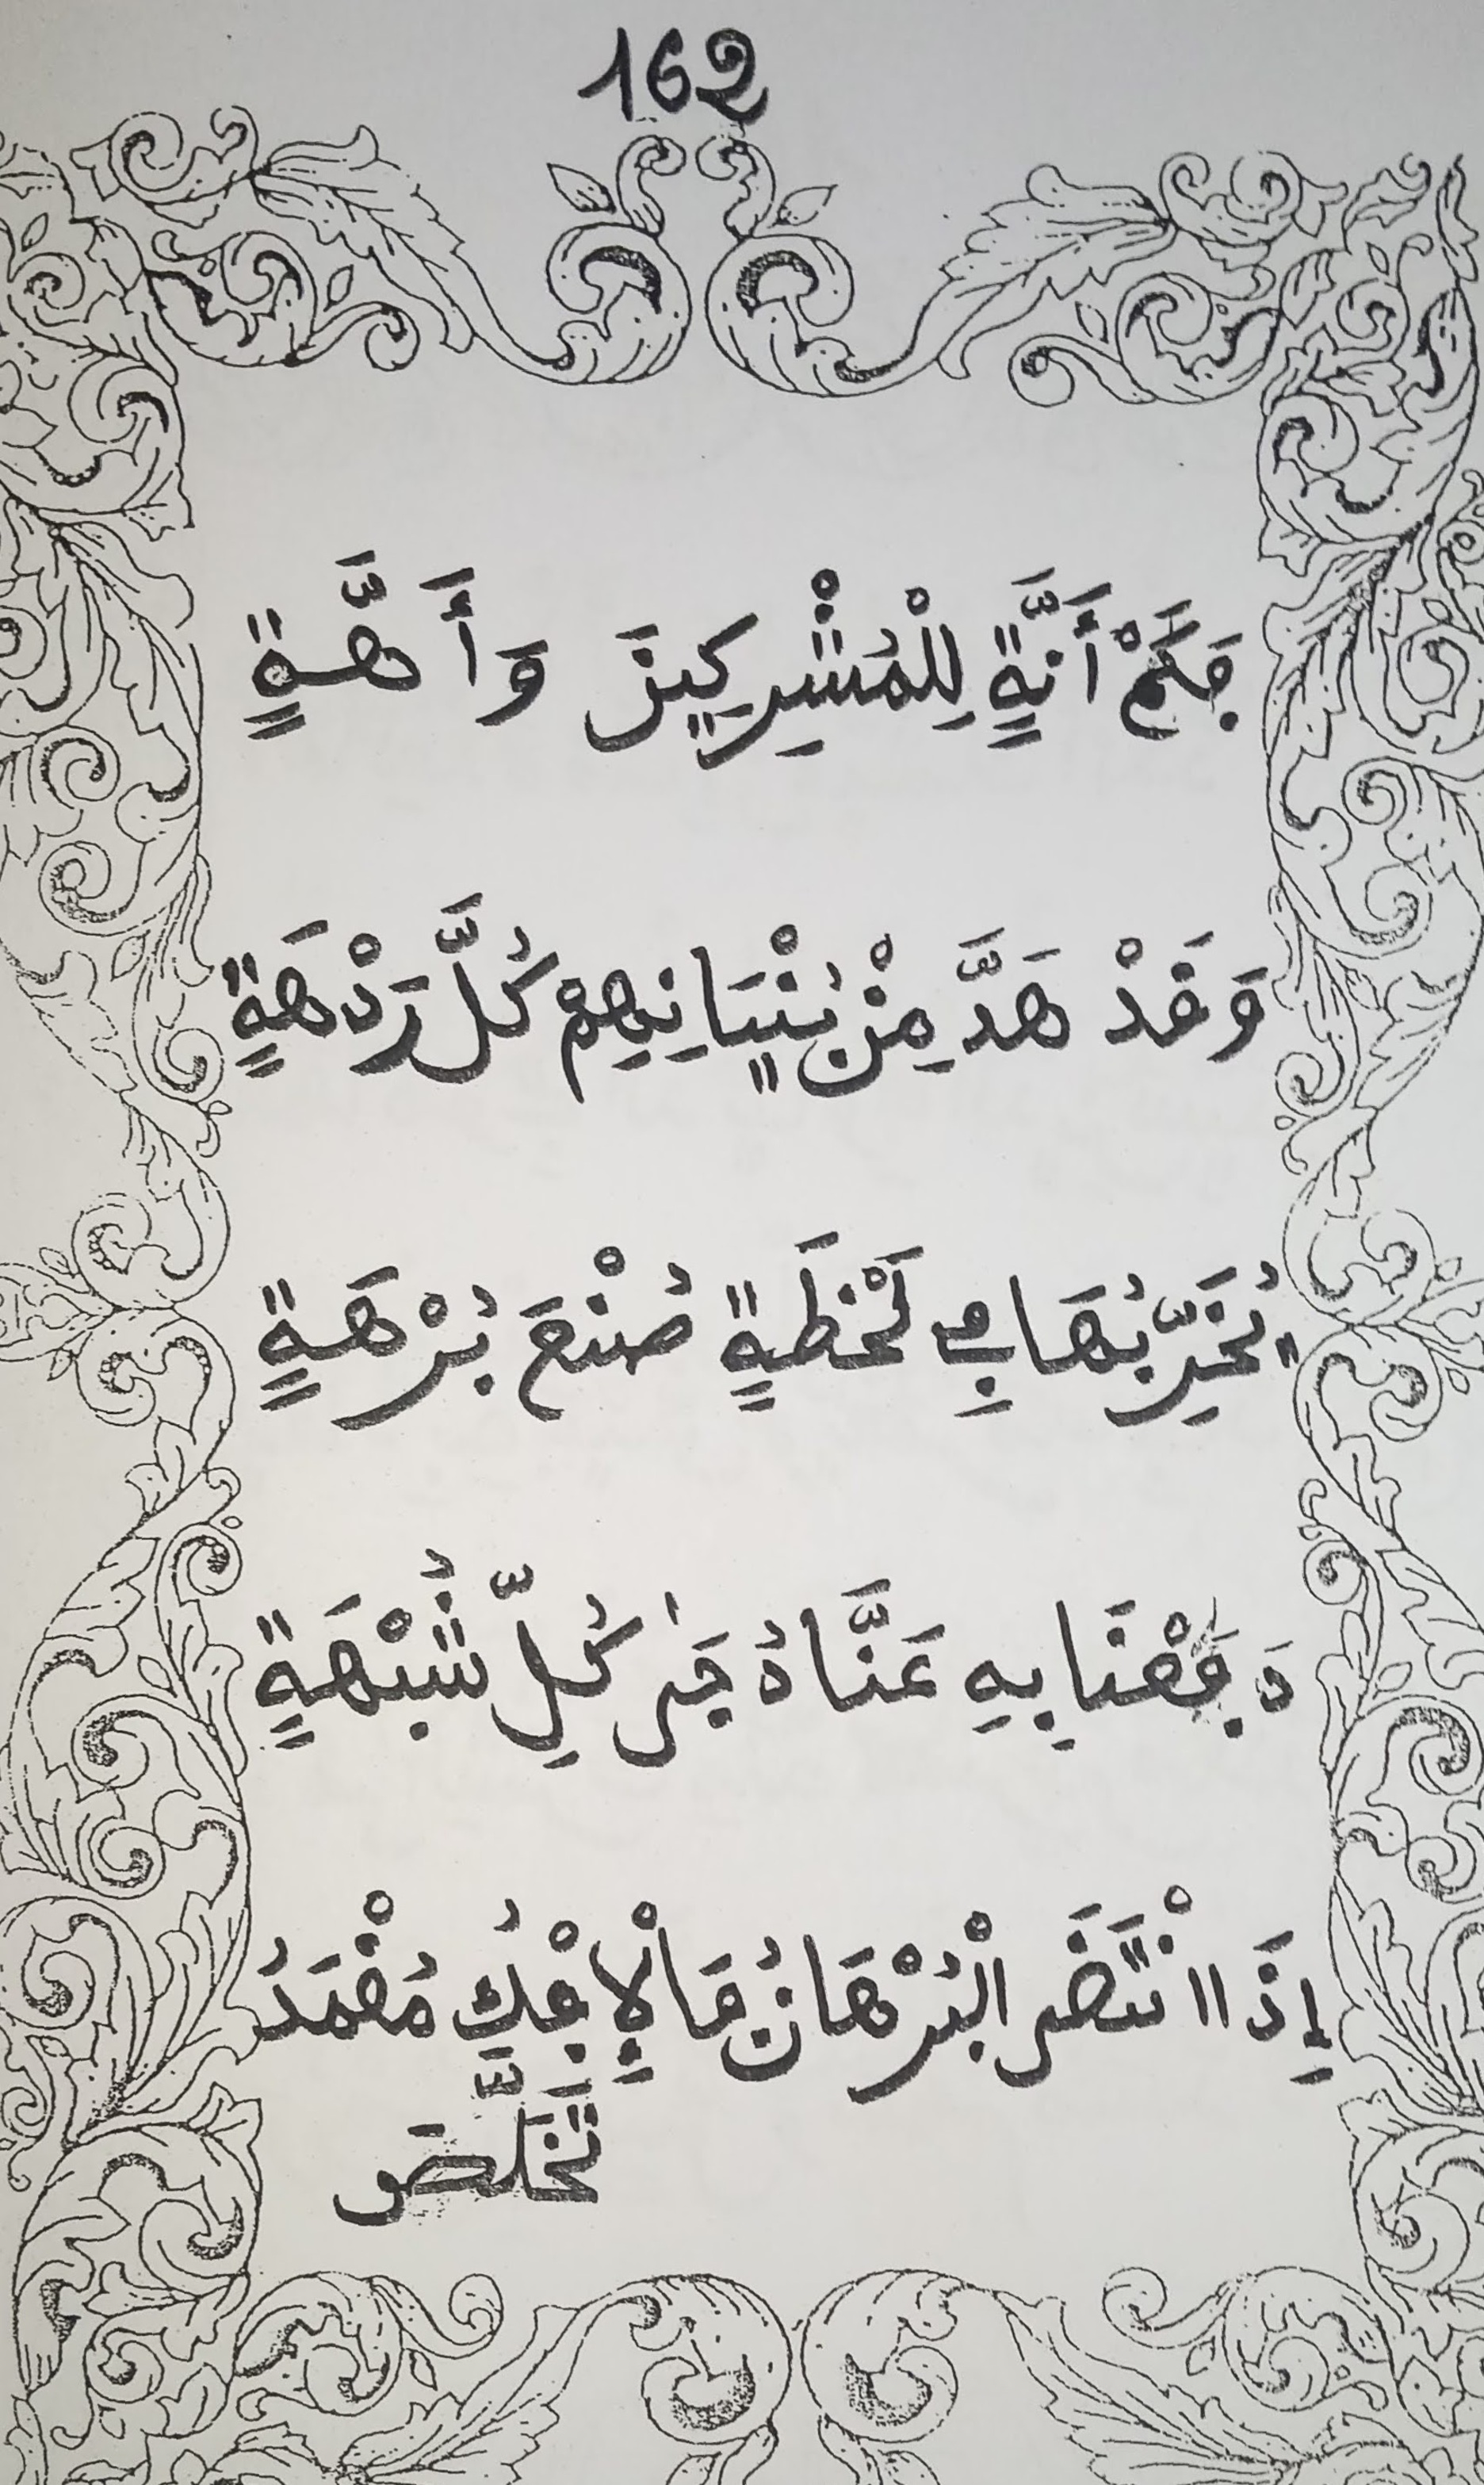 162
فَكَمْ أَنَّةٍ لِلْمُشْرِكِينَ وَأَهَّةٍ
وَقَدْ هَدَّ مِنْ بُنْيَانِهِمْ كُلَّ رَدْهَةٍ
يُخَرِّبُهَا فِي لَحْظَةٍ صُنْعَ بُرْهَةٍ
دَفَعْنَا بِهِ عَنَّا دُجَى كُلِّ شُبْهَةٍ
إِذَا انْتَضَى الْبُرْهَانُ مَا لِإِفْكِ مُغْمَدُ
تَخَلَّصَ